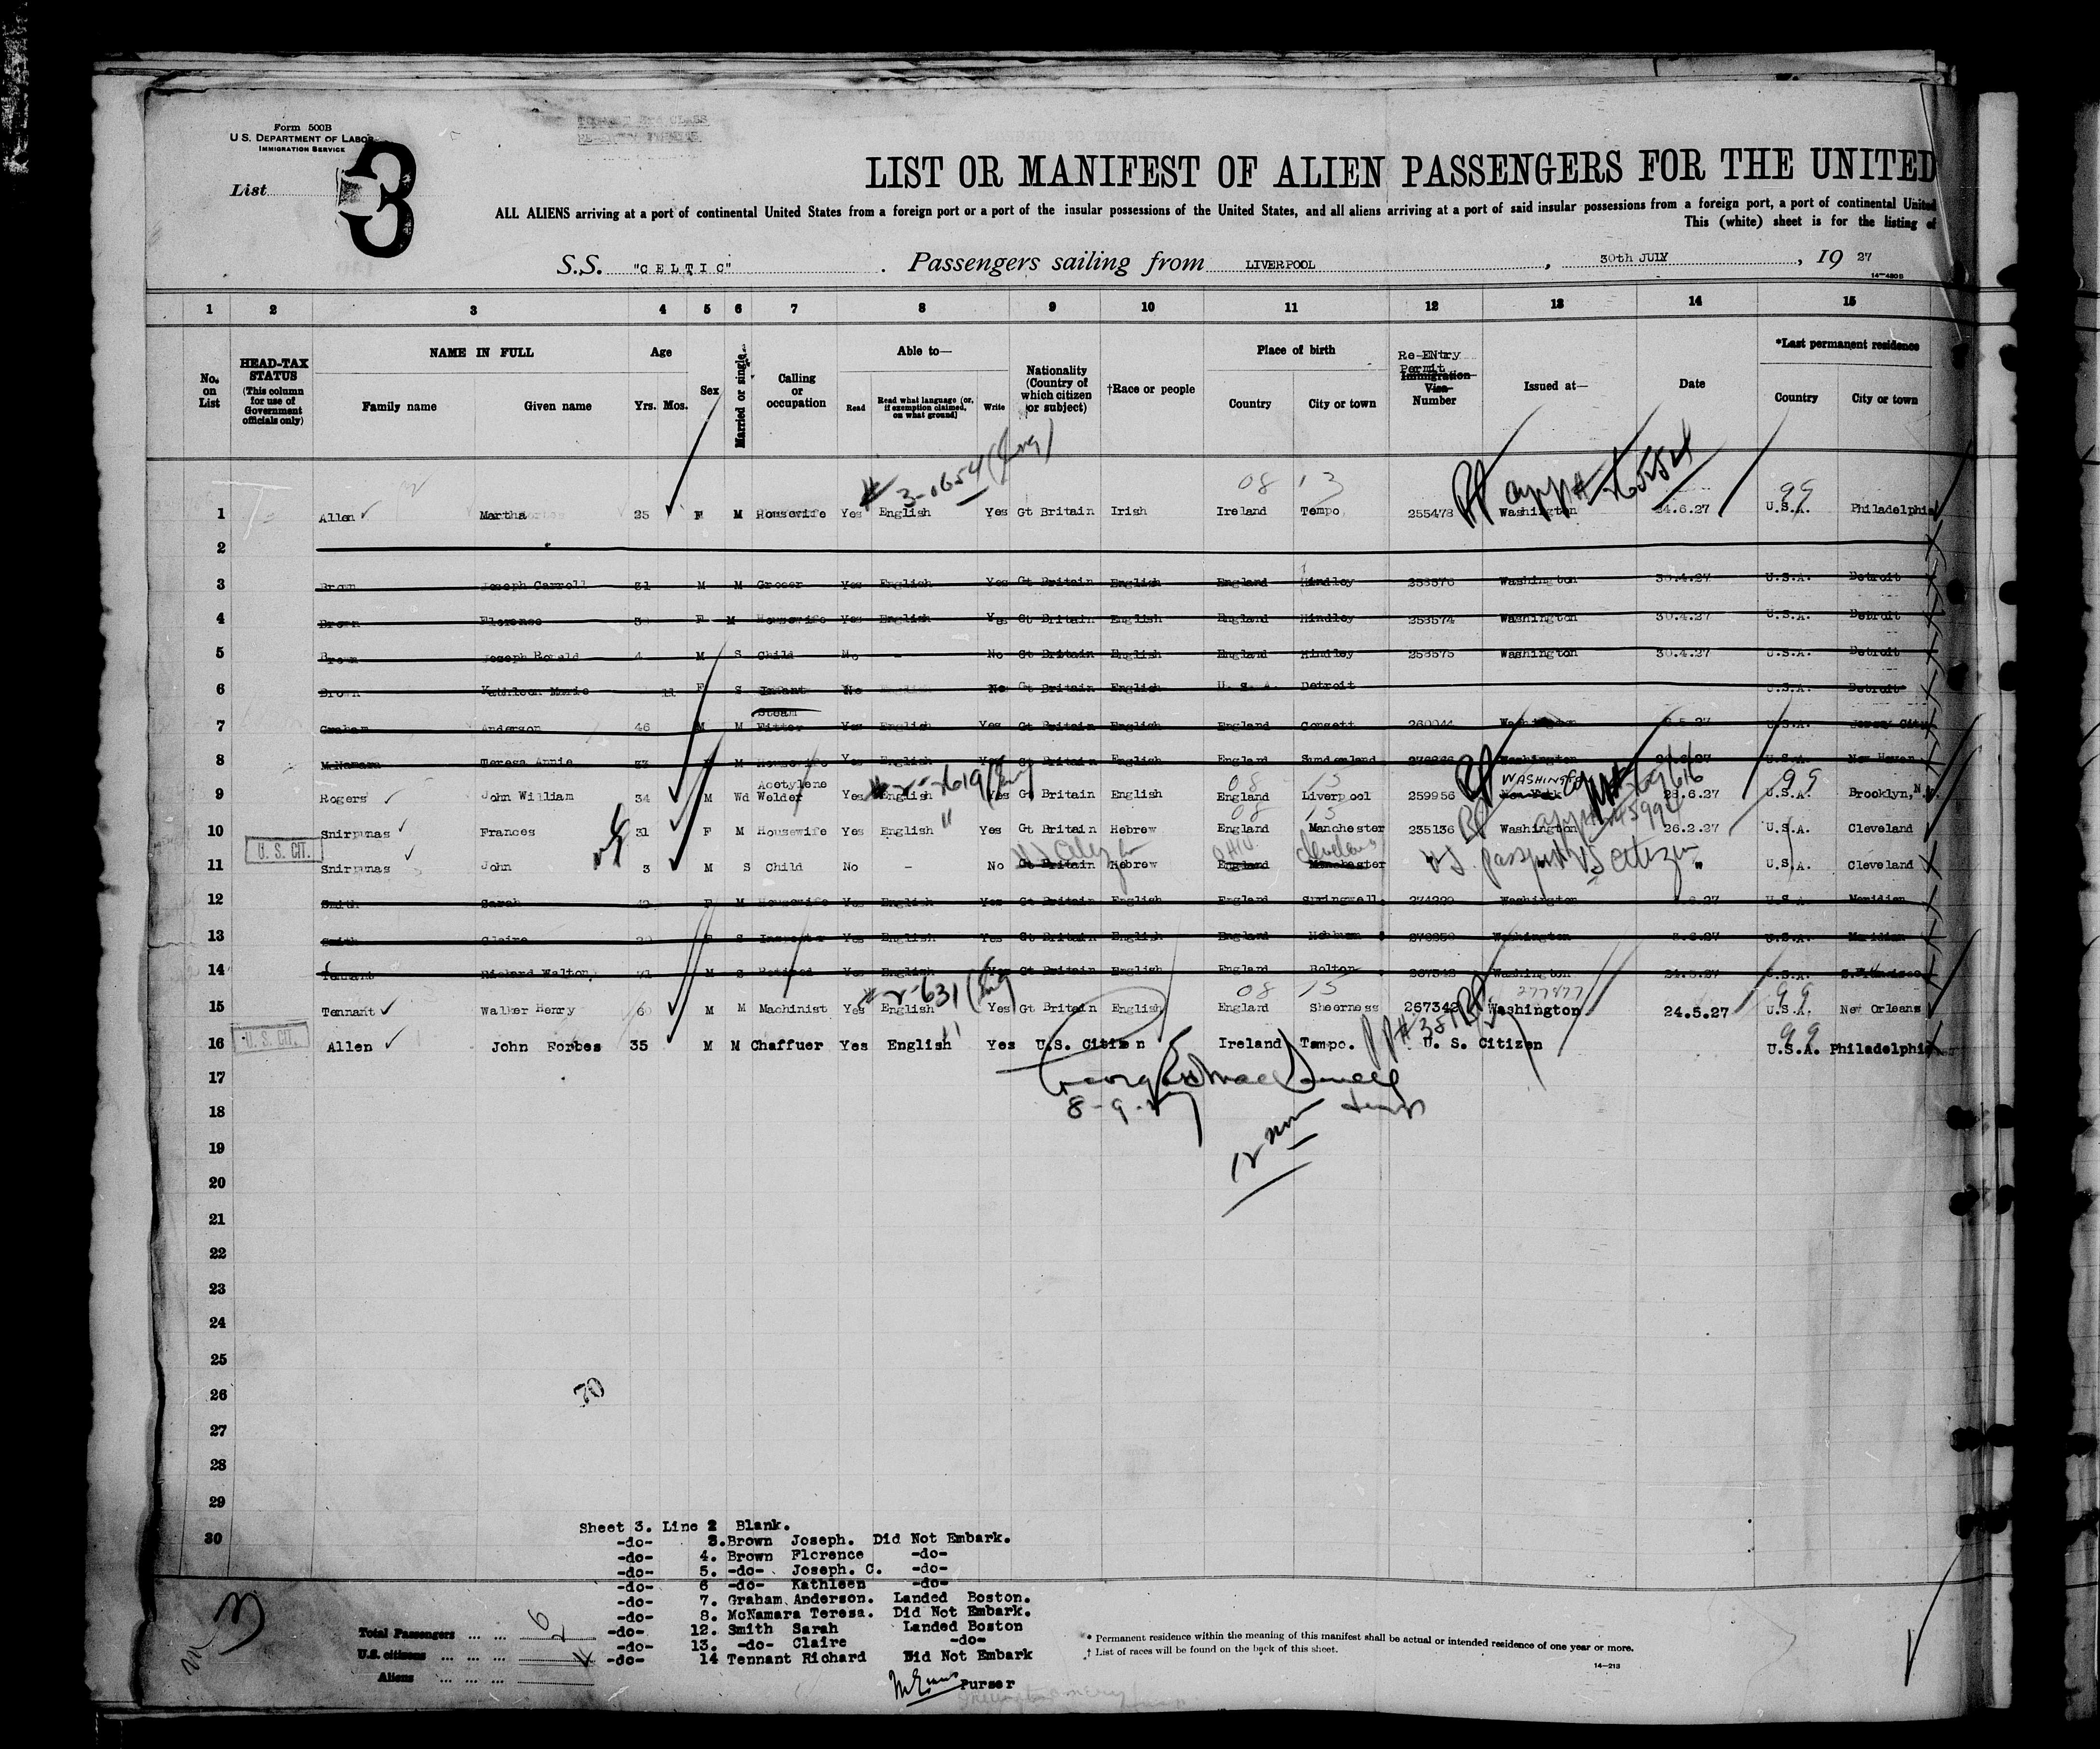 Form 500B
U.S. DEPARTMENT OF LABOR
IMMIGRATION SERVICE
List 3
LIST OR MANIFEST OF ALIEN PASSENGERS FOR THE UNITED
ALL ALIENS arriving at a port of continental United States from a foreign port or a port of the insular possessions of the United States, and all aliens arriving at a port of said insular possessions from a foreign port, a port of continental United
This (white) sheet is for the listing of
S.S. "CELTIC" . Passengers sailing from LIVERPOOL , 30th JULY , 19 27
14-4808
1 2 3 4 5 6 7 8 9 10 11 12 13 14 15
No. on List
HEAD-TAX STATUS (This column for use of Government officials only)
NAME IN FULL Family name Given name
Age Yrs. Mos.
Sex
Married or single
Calling or occupation
Able to— Read Read what language (or, if exemption claimed, on what ground) Write
Nationality (Country of which citizen or subject)
†Race or people
Place of birth Country City or town
Re-ENtry Permit Immigration Visa Number
Issued at—
Date
*Last permanent residence Country City or town
# 3-0654 (Eng)
08 13
99
1 Allen Martha 25 F M Housewife Yes English Yes Gt Britain Irish Ireland Tempo 255478 Washington 24.6.27 U.S.A. Philadelphia
2
3 Brown Joseph Carroll 31 M M Grocer Yes English Yes Gt Britain English England Hindley 258576 Washington 30.4.27 U.S.A. Detroit
4 Brown Florence 30 F M Housewife Yes English Yes Gt Britain English England Hindley 258574 Washington 30.4.27 U.S.A. Detroit
5 Brown Joseph Ronald 4 M S Child No - No Gt Britain English England Hindley 258575 Washington 30.4.27 U.S.A. Detroit
6 Brown Kathleen Marie 11 F S Infant No No Gt Britain English U.S.A. Detroit U.S.A. Detroit
7 Graham Anderson 46 M M Steam Fitter Yes English Yes Gt Britain English England Consett 260944 Washington U.S.A. Jersey City
8 McNamara Teresa Annie F M Housewife Yes English Yes Gt Britain English England Sunderland Washington U.S.A. New Haven
08 13
99
9 Rogers John William 34 M Wd Acetylene Welder Yes English Yes Gt Britain English England Liverpool 259956 New York WASHINGTON 28.6.27 U.S.A. Brooklyn, N.Y.
10 Snirpunas Frances 31 F M Housewife Yes English " Yes Gt Britain Hebrew England Manchester 235136 Washington 26.2.27 U.S.A. Cleveland
U. S. CIT.
11 Snirpunas John 3 M S Child No - No Gt Britain Hebrew England Manchester Ohio Cleveland U.S. passport US Citizen " U.S.A. Cleveland
12 Smith Sarah F M Housewife Yes English Yes Gt Britain English England Springwell Washington U.S.A. Meridian
13 Smith Claire F S Yes English Yes Gt Britain English England Hebburn Washington U.S.A. Meridian
14 Tennant Richard Walton 71 M S Retired Yes English Yes Gt Britain English England Bolton Washington 24.5.27 U.S.A.
08 13
277877
99
15 Tennant Walker Henry 60 M M Machinist Yes English Yes Gt Britain English England Sheerness 267342 Washington 24.5.27 U.S.A. New Orleans
U. S. CIT.
16 Allen John Forbes 35 M M Chaffuer Yes English Yes U.S. Citizen Ireland Tempo. U. S. Citizen U.S.A. Philadelphia
17
8-9-27
18
19
20
21
22
23
24
25
26
70
27
28
29
30
Sheet 3. Line 2 Blank.
-do- 3. Brown Joseph. Did Not Embark.
-do- 4. Brown Florence -do-
-do- 5. -do- Joseph. C. -do-
-do- 6 -do- Kathleen -do-
-do- 7. Graham Anderson. Landed Boston.
-do- 8. McNamara Teresa. Did Not Embark.
-do- 12. Smith Sarah Landed Boston
-do- 13. -do- Claire -do-
-do- 14 Tennant Richard Did Not Embark
Purser
3
Total Passengers ... ... 6
U.S. citizens ... ... ... 2
Aliens ... ... ... 4
* Permanent residence within the meaning of this manifest shall be actual or intended residence of one year or more.
† List of races will be found on the back of this sheet.
14-213